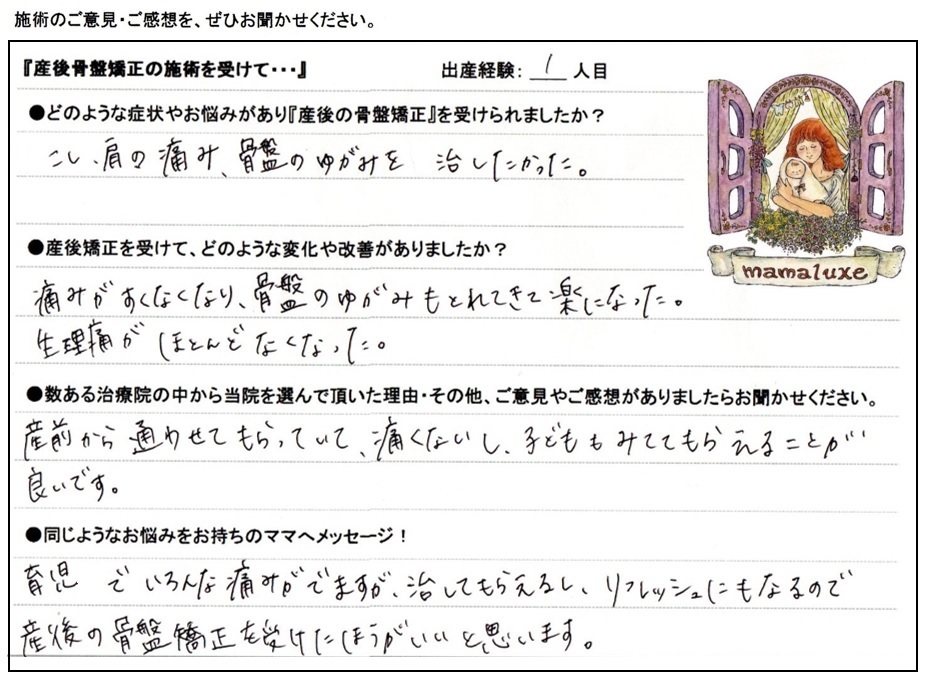 施術のご意見・ご感想を、ぜひお聞かせください。
『産後骨盤矯正の施術を受けて・・・』 出産経験: 1 人目
●どのような症状やお悩みがあり『産後の骨盤矯正』を受けられましたか？
こし、肩の痛み、骨盤のゆがみを 治したかった。
●産後矯正を受けて、どのような変化や改善がありましたか？
痛みがすくなくなり、骨盤のゆがみもとれてきて楽になった。
生理痛が ほとんどなくなった。
mamaluxe
●数ある治療院の中から当院を選んで頂いた理由・その他、ご意見やご感想がありましたらお聞かせください。
産前から通わせてもらっていて、痛くないし、子どももみててもらえることが
良いです。
●同じようなお悩みをお持ちのママへメッセージ！
育児 でいろんな痛みがでますが、治してもらえるし、リフレッシュにもなるので
産後の骨盤矯正を受けたほうがいいと思います。